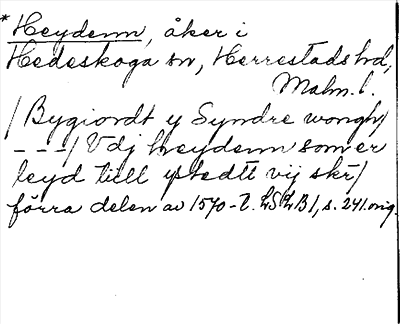 *Heydenn, åker i
Hedeskoga sn, Herrestads hd,
Malm. l.
/Bygiordt y Syndre wongh/
---/ Vdj heydenn som er
leyd till ystedtt vij skr/
förra delen av 1570-t. LSLB1, s. 241. orig.